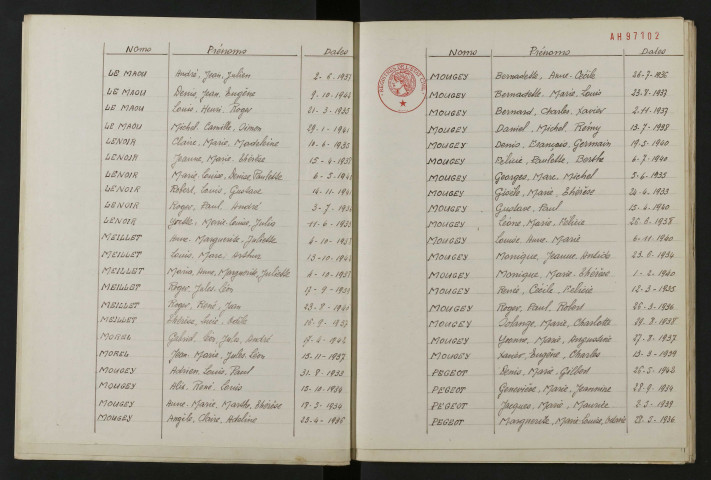 Noms Prénoms Dates
LE MAOU André, Jean, Julien 2-6-193
LE MAOU Denis, Jean, Eugène 9-10-194
LE MAOU Louis, Henri, Roger 21-3-193
LE MAOU Michel, Camille, 29-1-194
LENOIR Claire, Marie, Madeleine 10-6-193
LENOIR Jeanne, Marie, Thérèse 15-4-193
LENOIR Marie-Louise, Denise, Paulette 6-5-194
LENOIR Robert, Louis, Gustave 14-11-194
LENOIR Roger, Paul, André 3-7-193
LENOIR Yvette, Marie-Louise, Julia 11-6-193
MEILLET Anne-Marguerite, Juliette 6-10-193
MEILLET Louis, Marc, Arthur 13-10-194
MEILLET Maria, Anne, Marguerite, Juliette 6-10-193
MEILLET Roger, Jules, Léon 17-9-193
MEILLET Roger, René, Jean 23-8-194
MEILLET Thérèse, 16-9-193
MOREL Gabriel, Léon, Jules, André 17-4-1942
MOREL Jean-Marie, Jules, Léon 15-11-1937
MOUGEY Adrien, Louis, Paul 31-8-1933
MOUGEY Alix, René, Louis 12-10-1934
MOUGEY Anne-Marie, Marthe, Thérèse 18-3-1934
MOUGEY Angèle, Claire, Adeline 23-4-1936
AH 97102
Noms Prénoms Dates
MOUGEY Bernadette, Anne, Cécile 26-7-1936
MOUGEY Bernadette, Marie, Louis 23-8-1937
MOUGEY Bernard, Charles, Xavier 2-11-1937
MOUGEY Daniel, Michel, Rémy 13-7-1938
MOUGEY Denis, François, Germain 19-5-1940
MOUGEY Félicie, Paulette, Berthe 6-7-1940
MOUGEY Georges, Marc, Michel 5-6-1933
MOUGEY Gisèle, Marie, Thérèse 24-4-1933
MOUGEY Gustave, Paul 15-4-1940
MOUGEY Léone, Marie, Félicie 26-8-1938
MOUGEY Louise, Anne, Marie 6-11-1940
MOUGEY Monique, Jeanne, Antide 23-6-1934
MOUGEY Monique, Marie-Thérèse 1-2-1940
MOUGEY Renée, Cécile, Félicie 12-3-1935
MOUGEY Roger, Paul, Robert 26-3-1936
MOUGEY Solange, Marie, Charlotte 28-8-1938
MOUGEY Yvonne, Marie, Augustine 27-8-1937
MOUGEY Xavier, Eugène, Charles 13-3-1939
PEGEOT Denis, Marie, Gilbert 26-5-1942
PEGEOT Geneviève, Marie, Jeannine 28-9-1934
PEGEOT Jacques, Marie, Maurice 2-3-1939
PEGEOT Marguerite, Marie-Louise, 22-3-1936